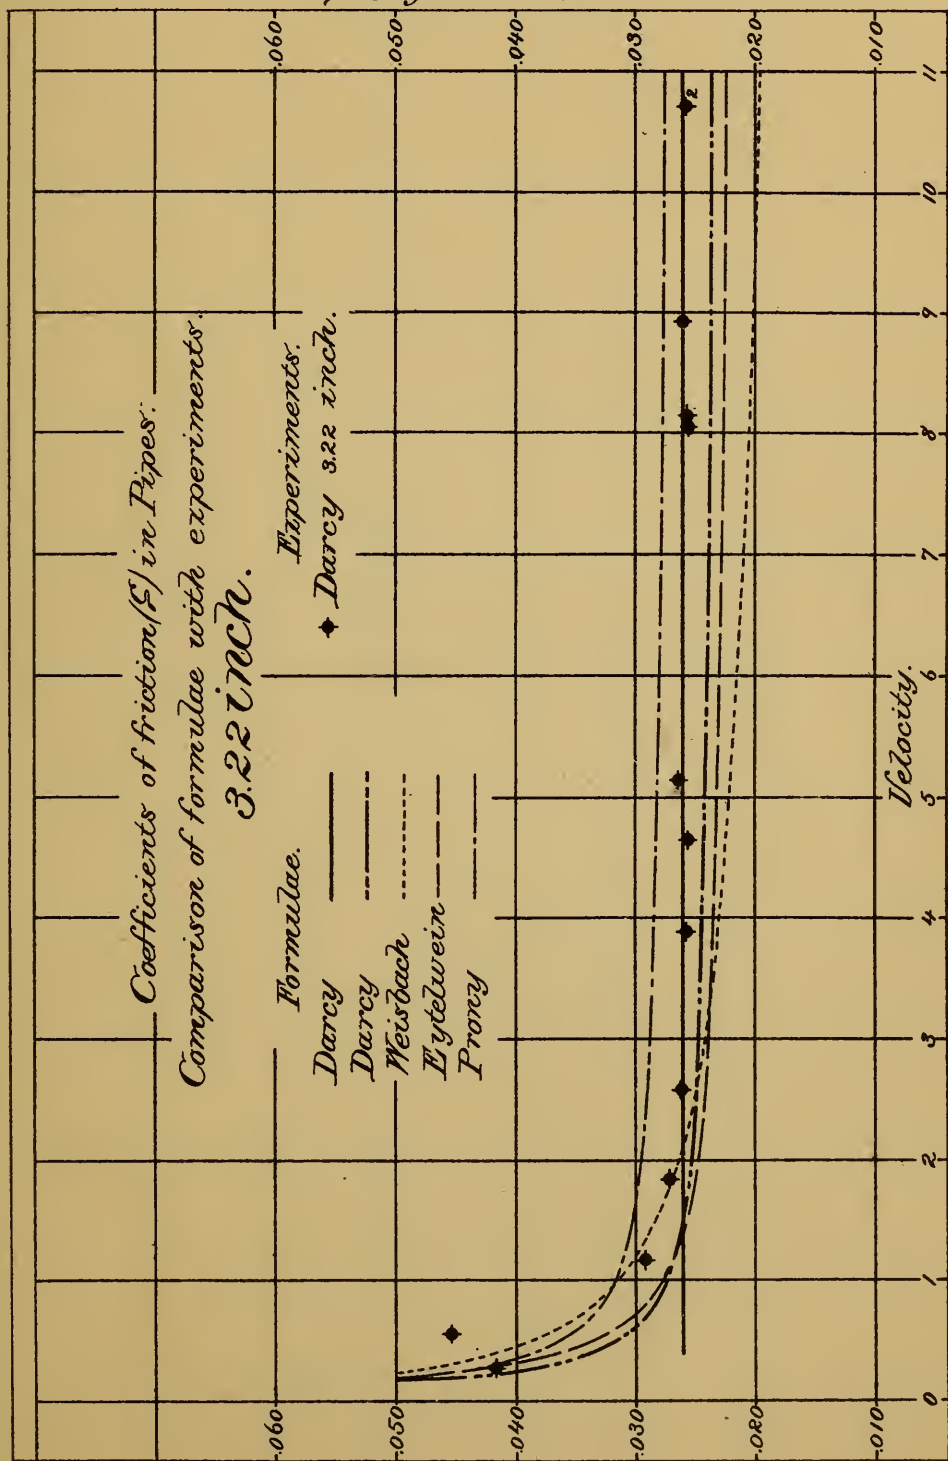 Coefficients of friction (ξ) in Pipes.
Comparison of formulae with experiments.
3.22 inch.
Formulae.
Darcy
Darcy
Weisbach
Eytelwein
Prony
Experiments.
Darcy 3.22 inch.
.060
.050
.040
.030
.020
.010
.060
.050
.040
.030
.020
.010
2
0 1 2 3 4 5 6 7 8 9 10 11
Velocity.